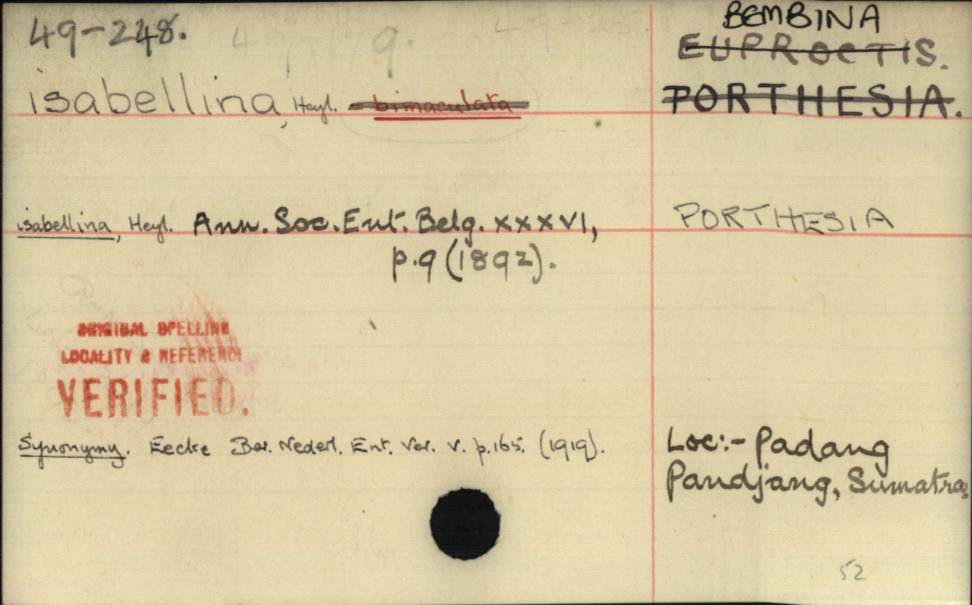 49-248.
BEMBINA
EUPROCTIS.
isabellina, Heyl. bimaculata
PORTHESIA.
isabellina, Heyl. Ann. Soc. Ent. Belg. XXXVI,
p.9 (1892).
PORTHESIA
ORIGINAL SPELLING
LOCALITY & REFERENCE
VERIFIED.
Synonymy. Eecke Ber. Nederl. Ent. Ver. V. p.165. (1919).
Loc:- Padang
Pandjang, Sumatra,
52